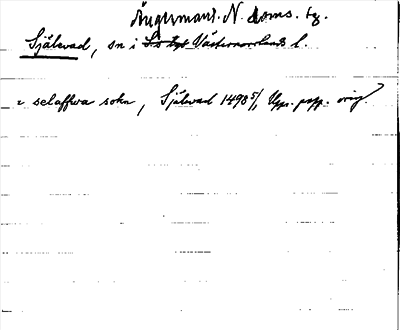 Ångermanl. N. doms. tg.
Själevad, sn i S:s tgl Västernorrlands l.
i selaffwa sokn, Själevad 1498 5/1 Upps. papp. orig.